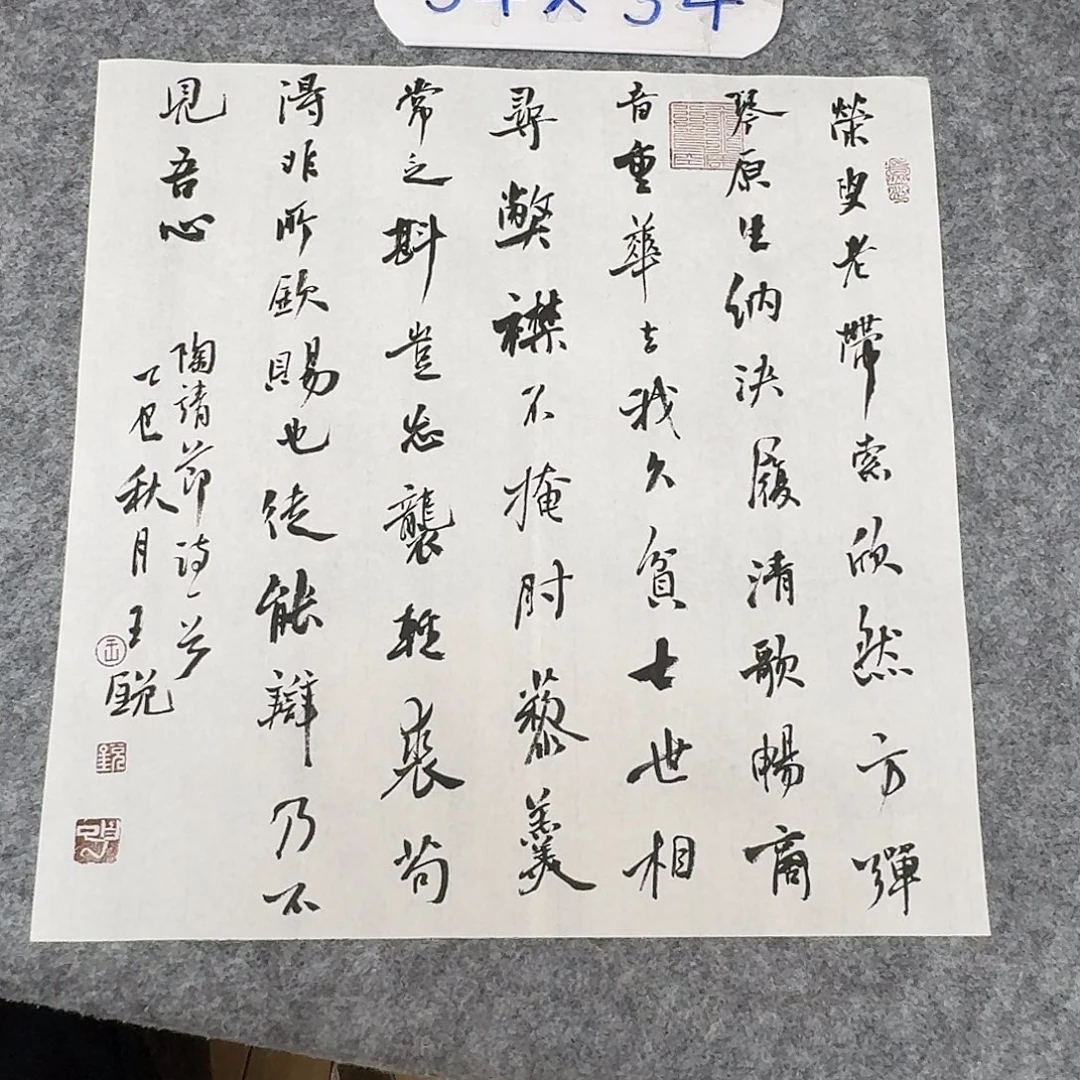 34×34
榮叟老帶索欣然方彈
琴原生納決履清歌暢商
音重華去我久貧士世相
尋弊襟不掩肘藜羹
常乏斟豈忘襲輕裘苟
得非所欽賜也徒能辯乃不
見吾心
陶靖節詩一首
乙巳秋月王銳